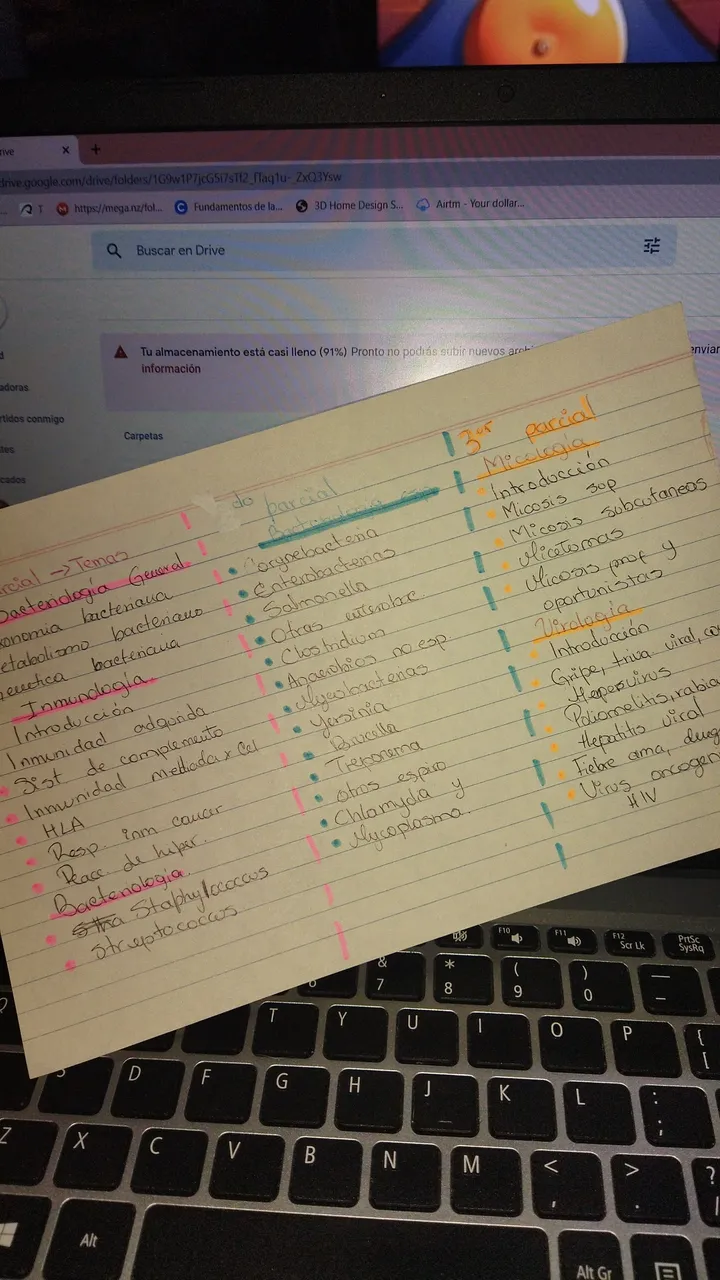 ive
drive.google.com/drive/folders/1G9w1P7jcG5i7sTf2_fTaq1u-_ZxQ3Ysw
T
https://mega.nz/fol...
Fundamentos de la...
3D Home Design S...
Airtm - Your dollar...
Buscar en Drive
Tu almacenamiento está casi lleno (91%) Pronto no podrás subir nuevos
enviar
información
Carpetas
adoras
rtidos conmigo
cados
rcial → Temas
Bacteriología General
onomia bacteriana
etabolismo bacteriano
bacteriana
Inmunología
Introducción
Inmunidad adquirida
Sist de complemento
Inmunidad mediada x Cel
HLA
Resp. inm cancer
Reacc. de hiper.
Bacteriología
Staphylococcus
Streptococcus
do parcial
Bacteriología esp
Corynebacteria
Enterobacterias
Salmonella
Otras enterobac.
Clostridium
Anaerobios no esp.
Mycobacterias
Yersinia
Brucella
Treponema
otros espiro
Chlamydia y
Mycoplasma.
3er parcial
Micología
Introducción
Micosis sup
Micosis subcutaneas
Micetomas
Micosis prof y
oportunistas
Virología
Introducción
Gripe, triva viral,
Herpesvirus
Poliomelitis, rabia
Hepatitis viral
Fiebre ama, deng
Virus oncogen
HIV
F10
F11
F12
Scr Lk
PrtSc
SysRq
6
&
7
*
8
(
9
)
0
—
-
T
Y
U
I
O
P
{
[
S
D
F
G
H
J
K
L
:
;
Z
X
C
V
B
N
M
<
,
>
.
?
Alt
Alt Gr